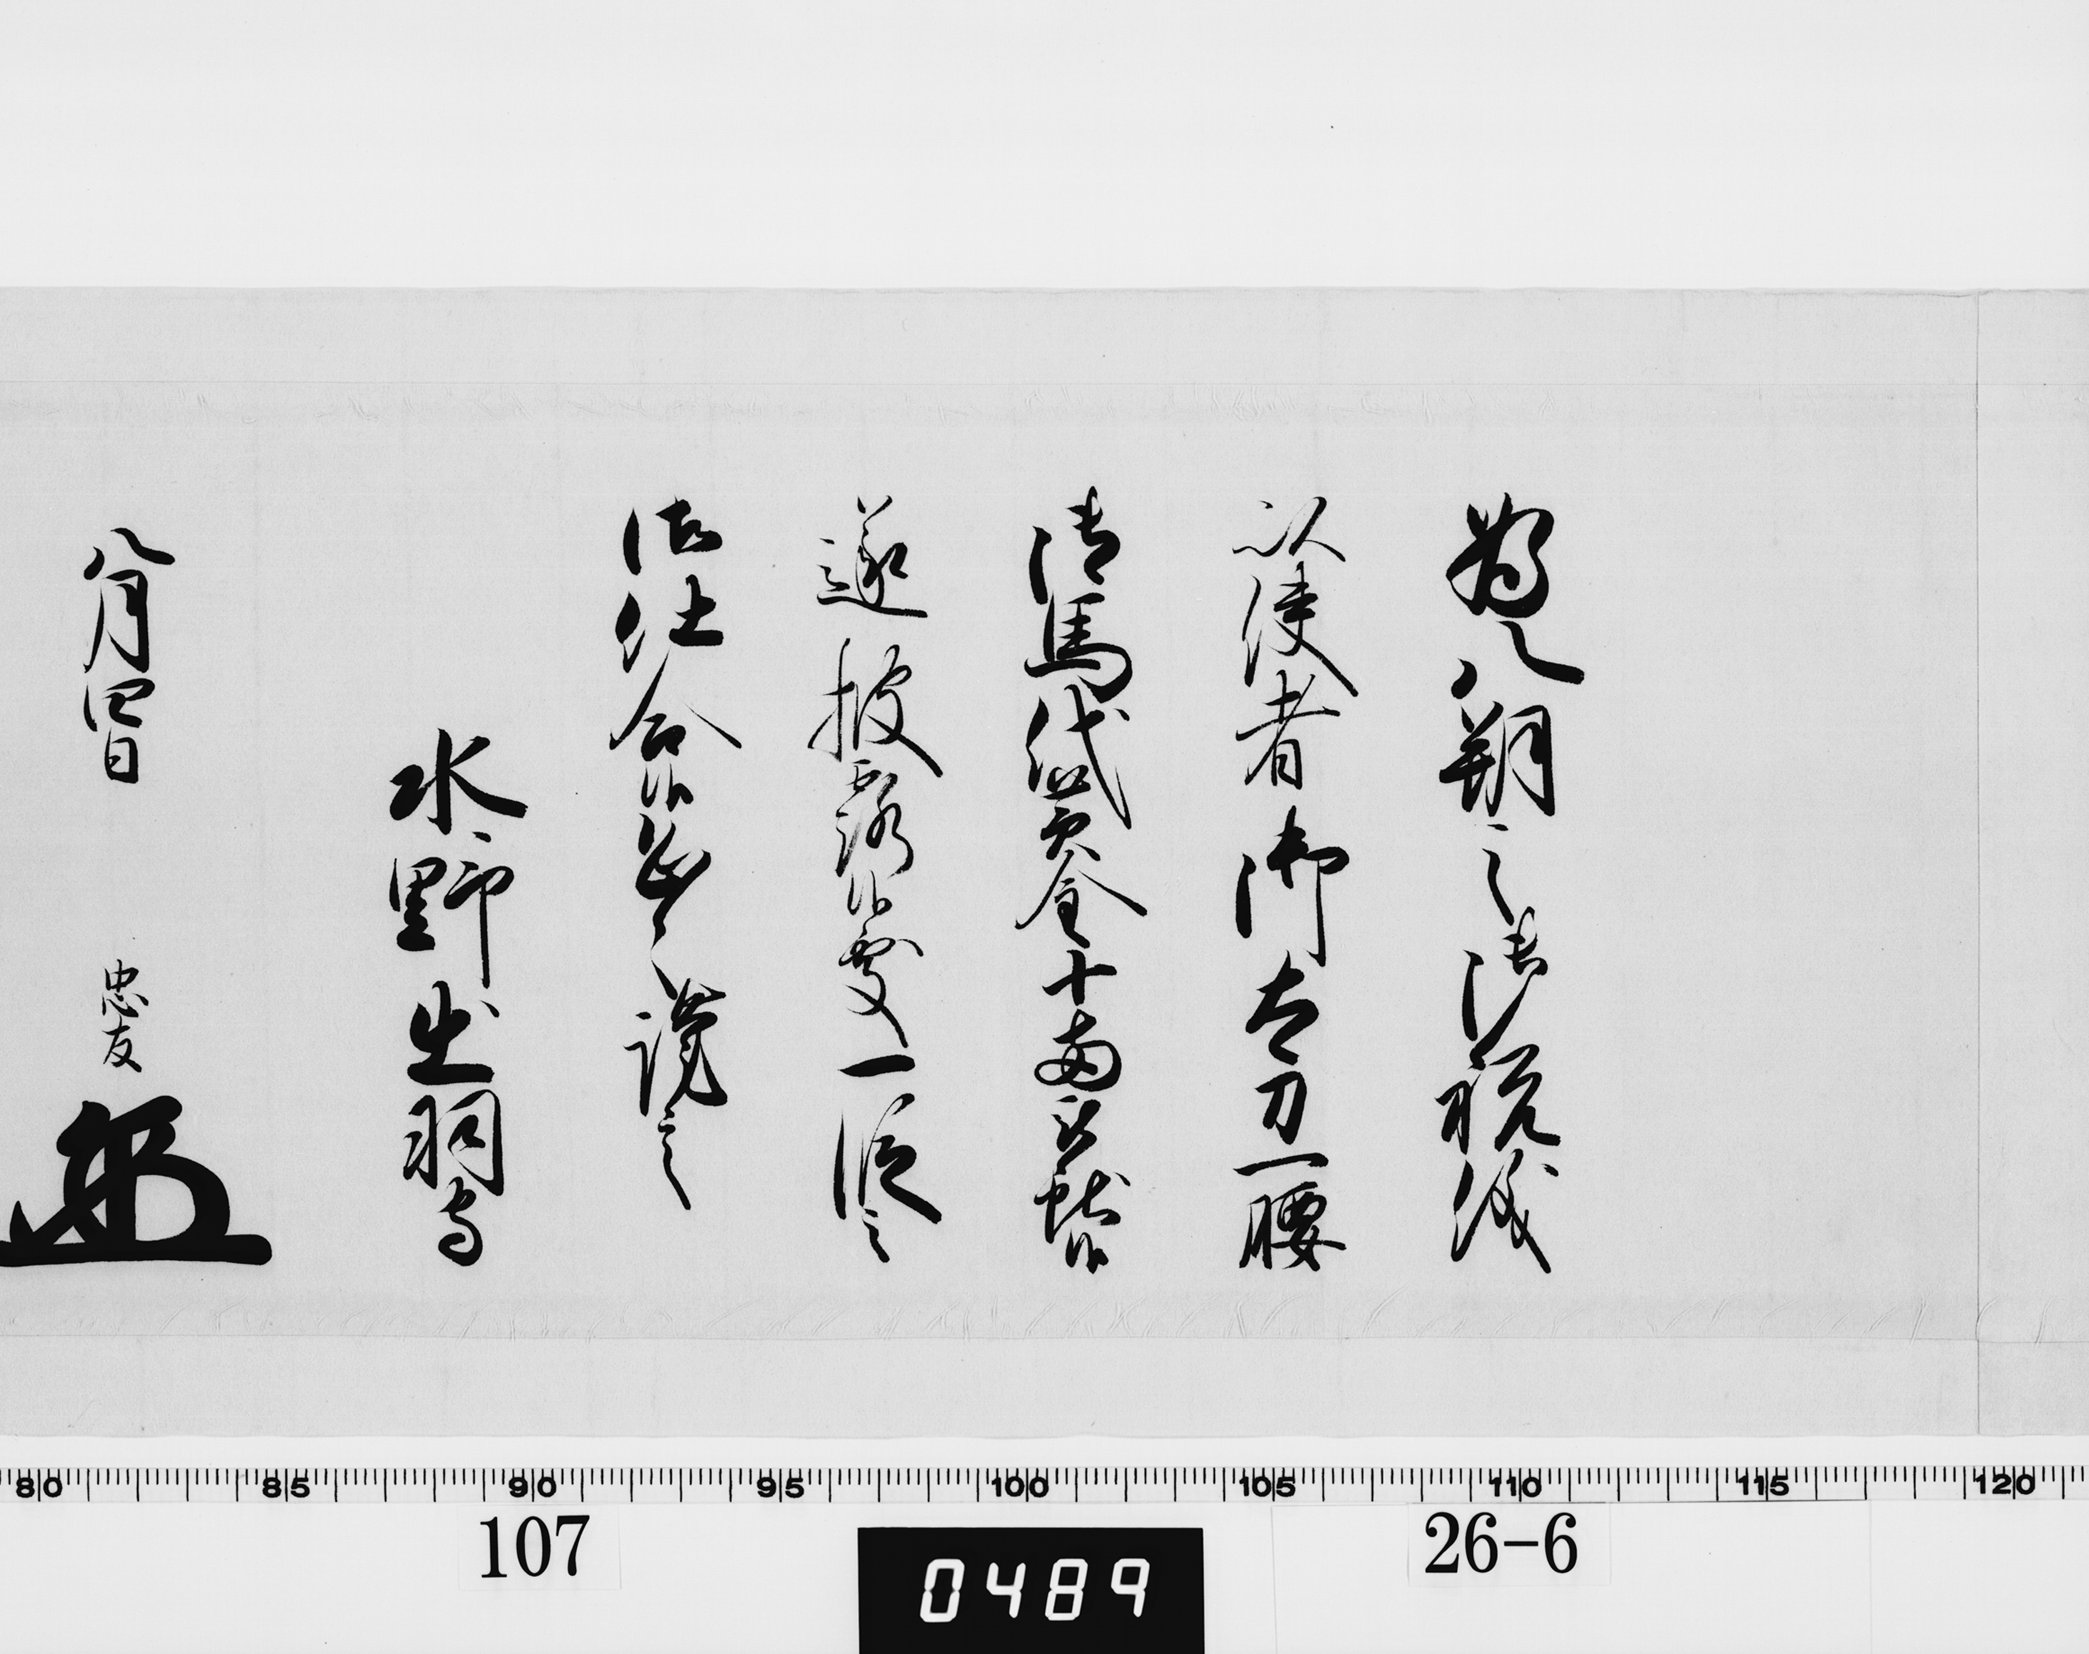 為八朔之御祝儀
以使者御太刀一腰
御馬代黄金十両被献候
遂披露候処一段之
御仕合候恐々謹言
水野出羽守
八月四日
忠友
80 85 90 95 100 105 110 115 120
107
0489
26-6